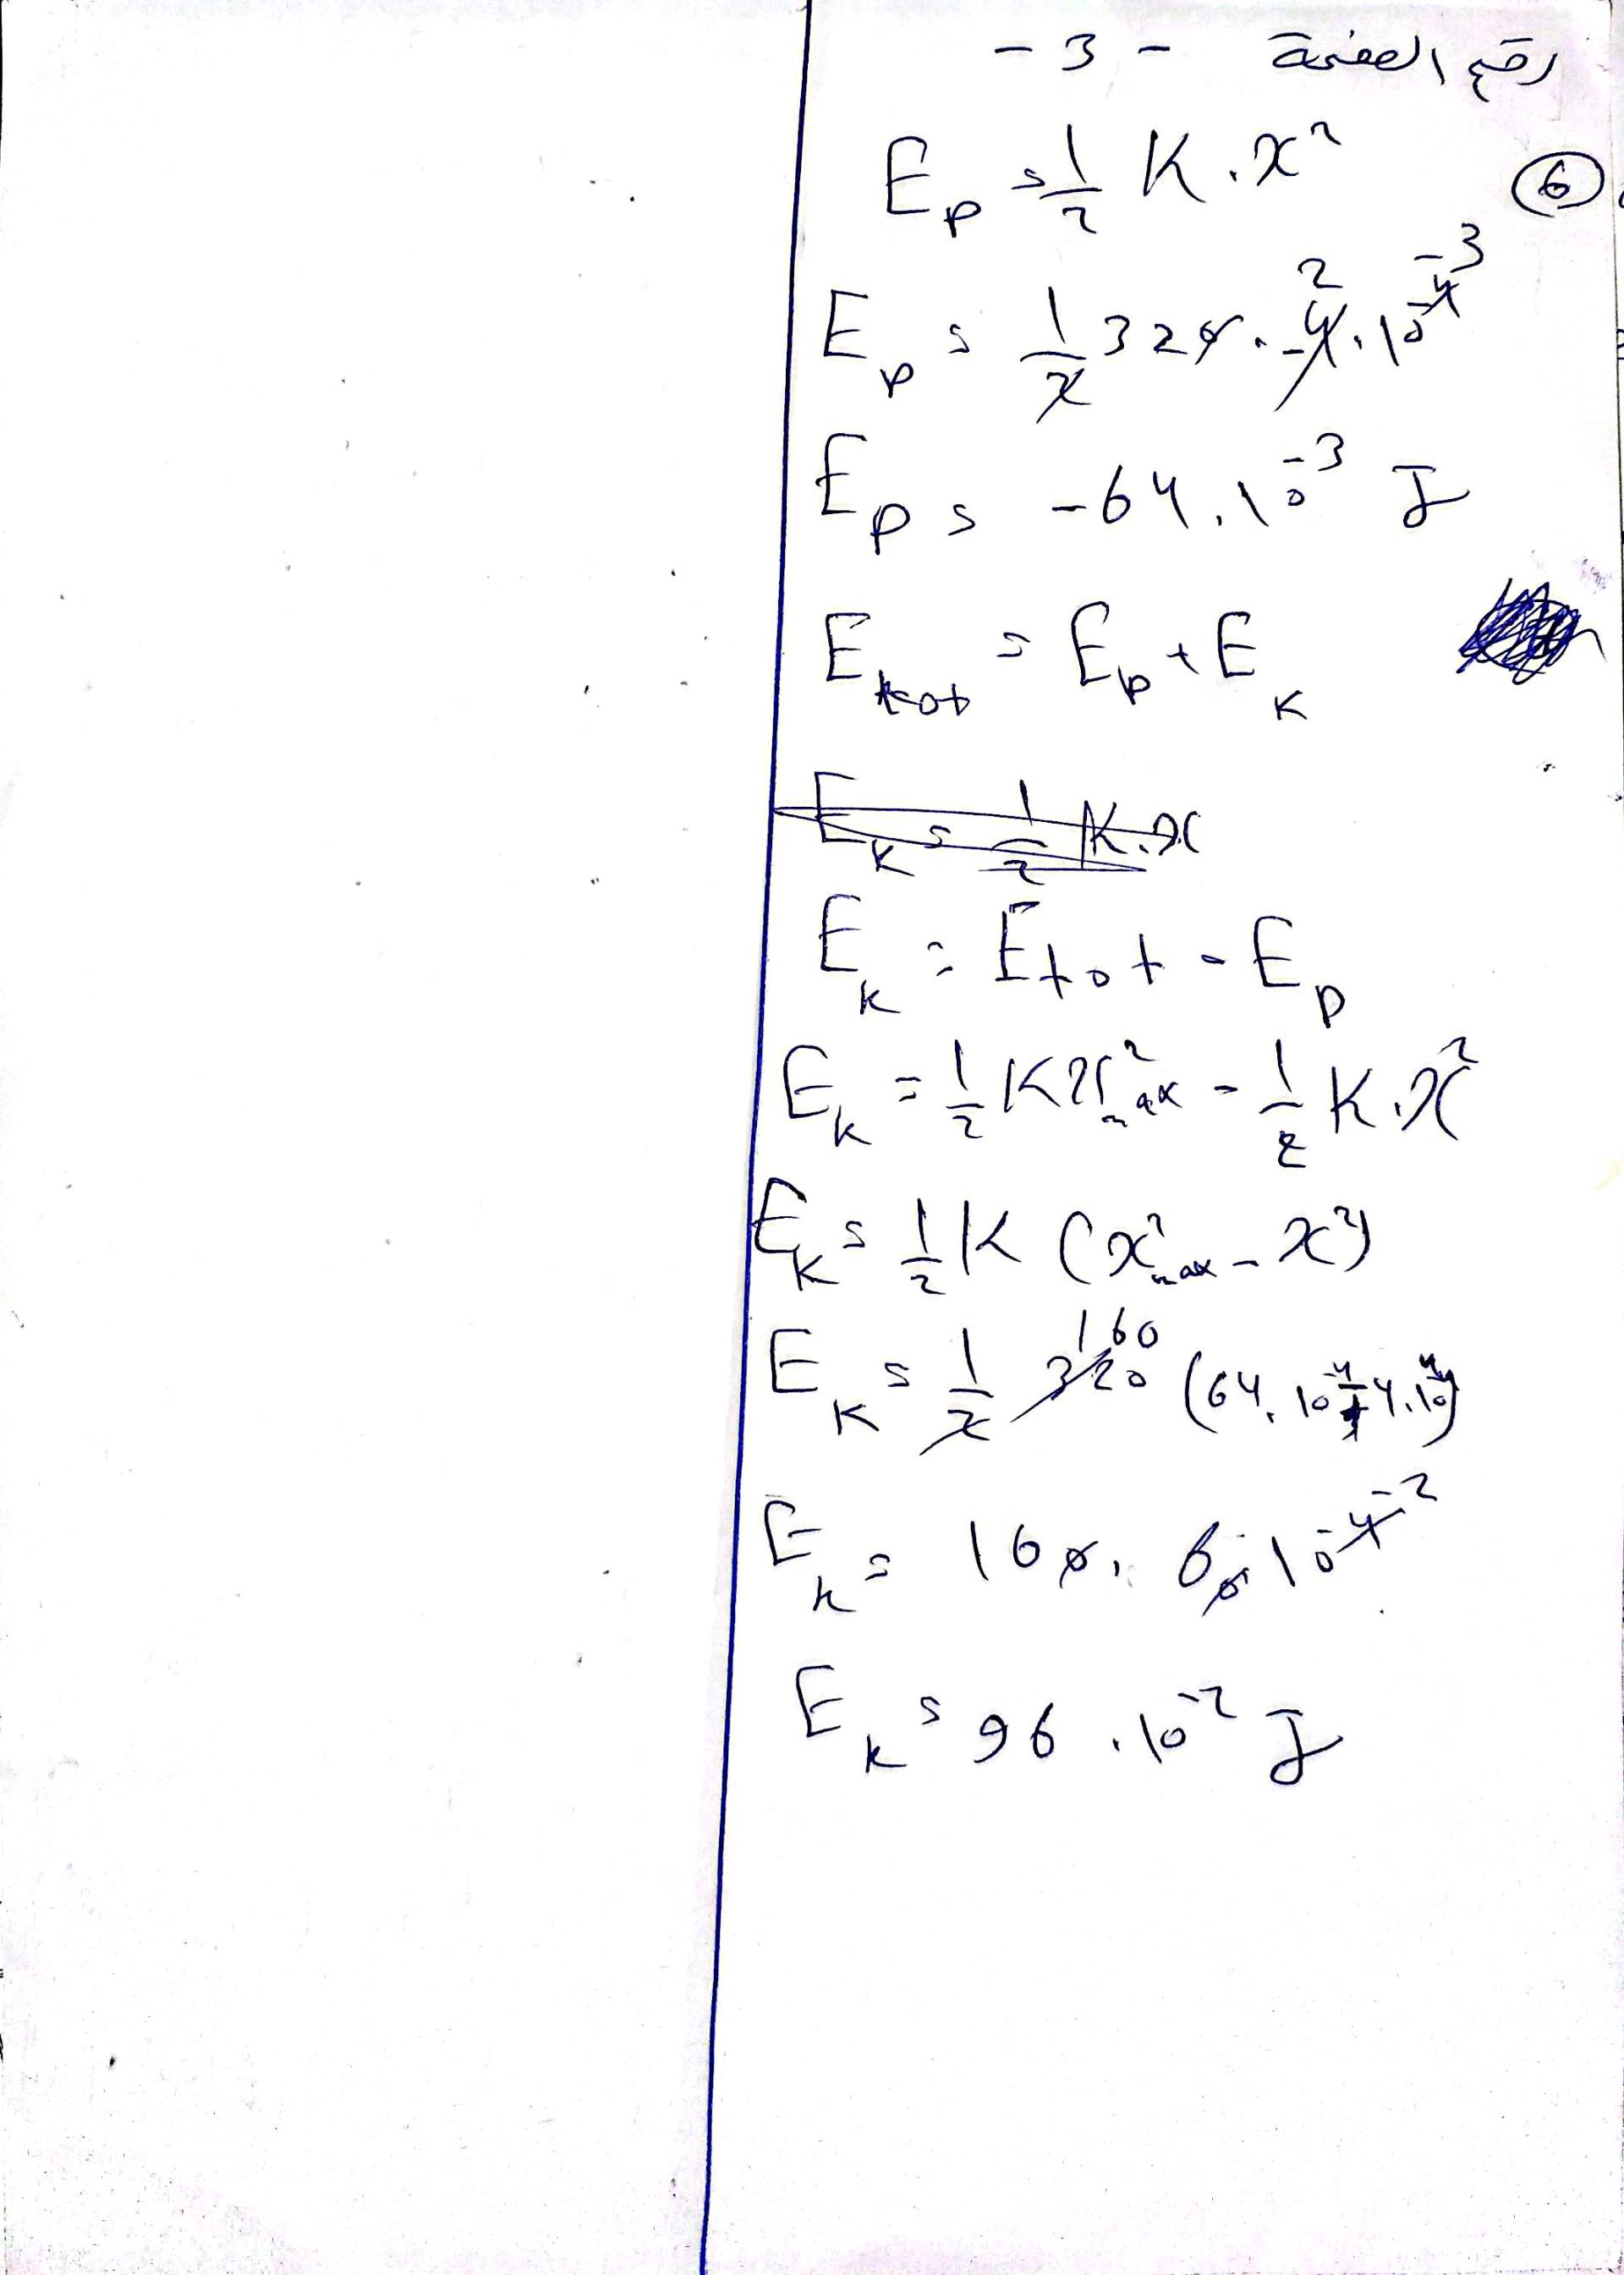 رقم الصفحة - 3 -
⑥ Ep = 1/2 K . x²
Ep = 1/2 320 . -4 . 10⁻⁴ 2 -3
Ep = -64 . 10⁻³ J
Etot = Ep + EK
EK = 1/2 K . x
EK = Etot - Ep
EK = 1/2 K x²max - 1/2 K . x²
EK = 1/2 K (x²max - x²)
EK = 1/2 320 160 (64 . 10⁻⁴ - 4 . 10⁻⁴)
EK = 160 . 60 10⁻⁴ -2
EK = 96 . 10⁻² J